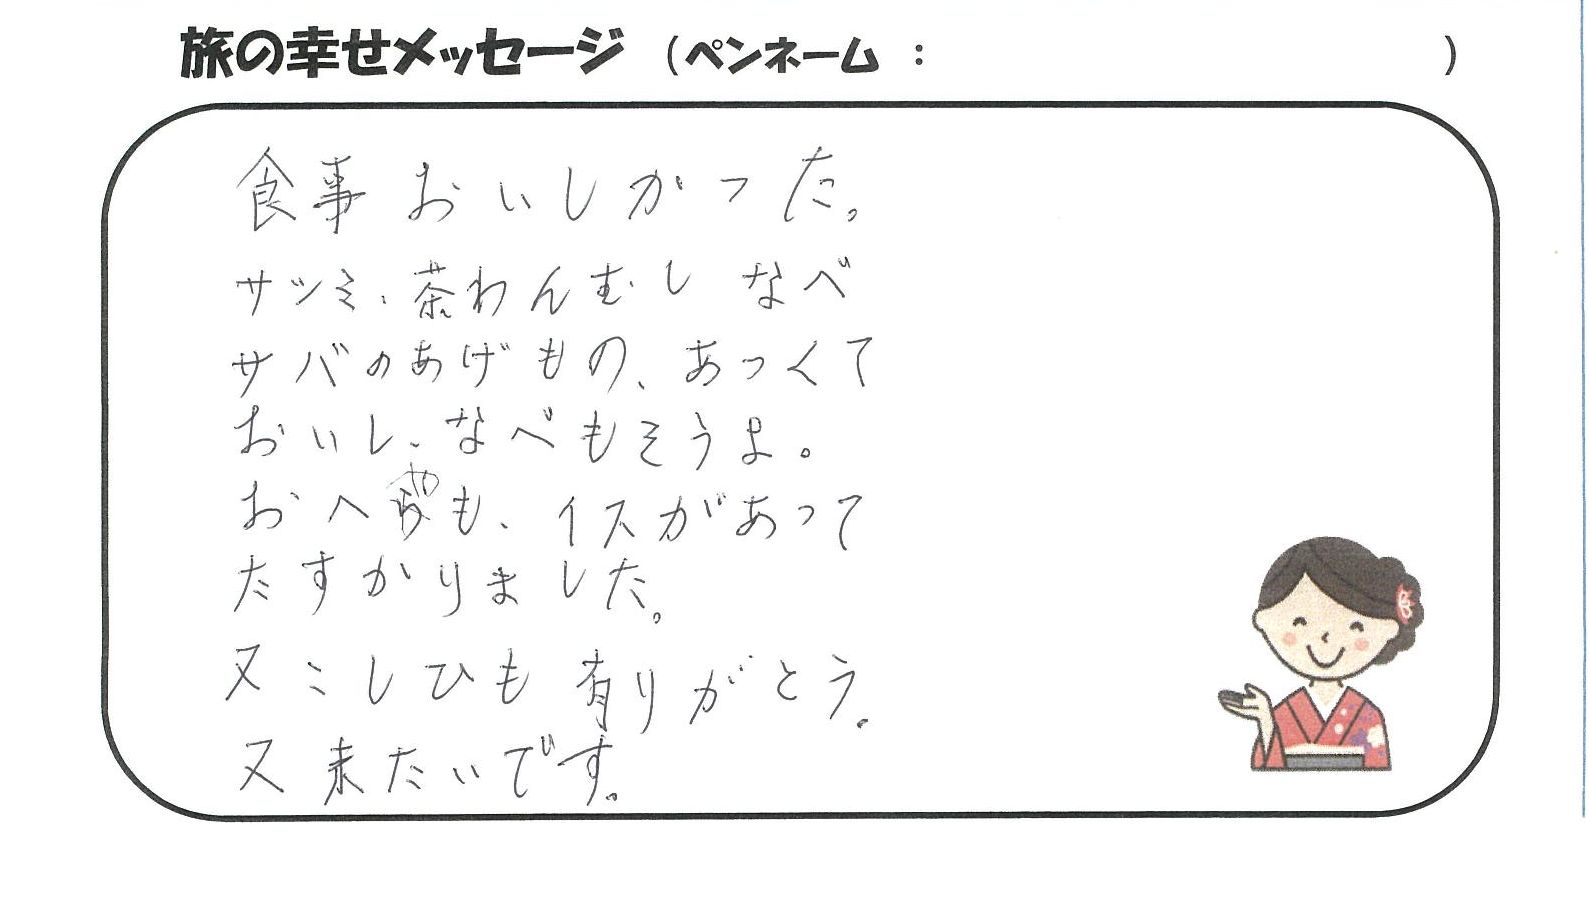 旅の幸せメッセージ （ペンネーム ： ）
食事 おいしかった。
サツミ、茶わんむし なべ
サバのあげもの、あつくて
おいし、なべもそうよ。
おへやも、イスがあって
たすかりました。
又こしひも有りがとう。
又来たいです。